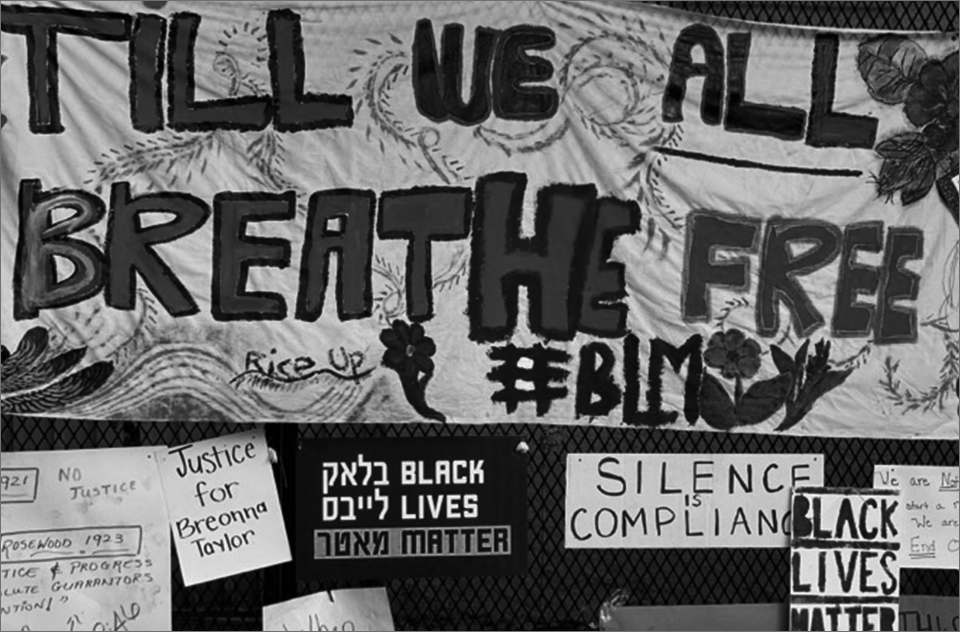 TILL WE ALL
BREATHE FREE
Rise Up
#BLM
1921
NO
JUSTICE
ROSEWOOD. 1923
TICE & PROGRESS
LUTE GUARANTORS
NTION!"
Justice
for
Breonna
Taylor
בלאק BLACK
לייבס LIVES
מאטר MATTER
SILENCE
IS
COMPLIANC
BLACK
LIVES
MATTER
We are Not
start a
"We are
End
When
THIS